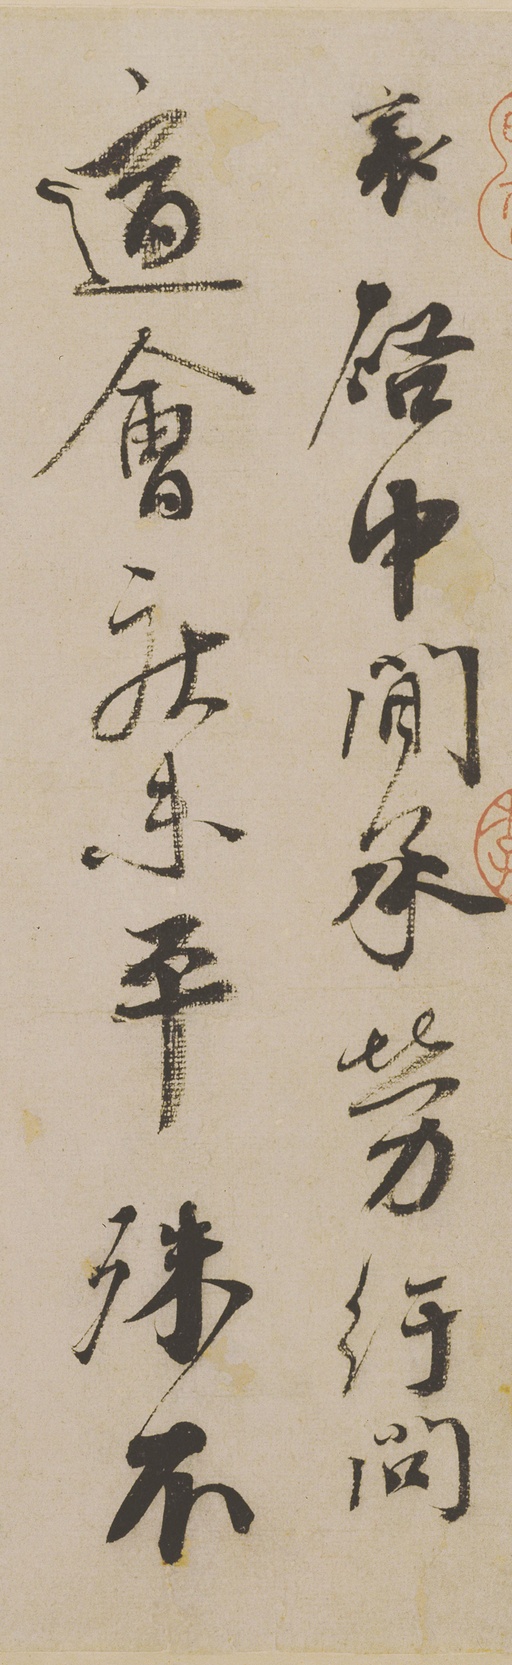 襄啓中間承勞行問
適會疾未平殊不